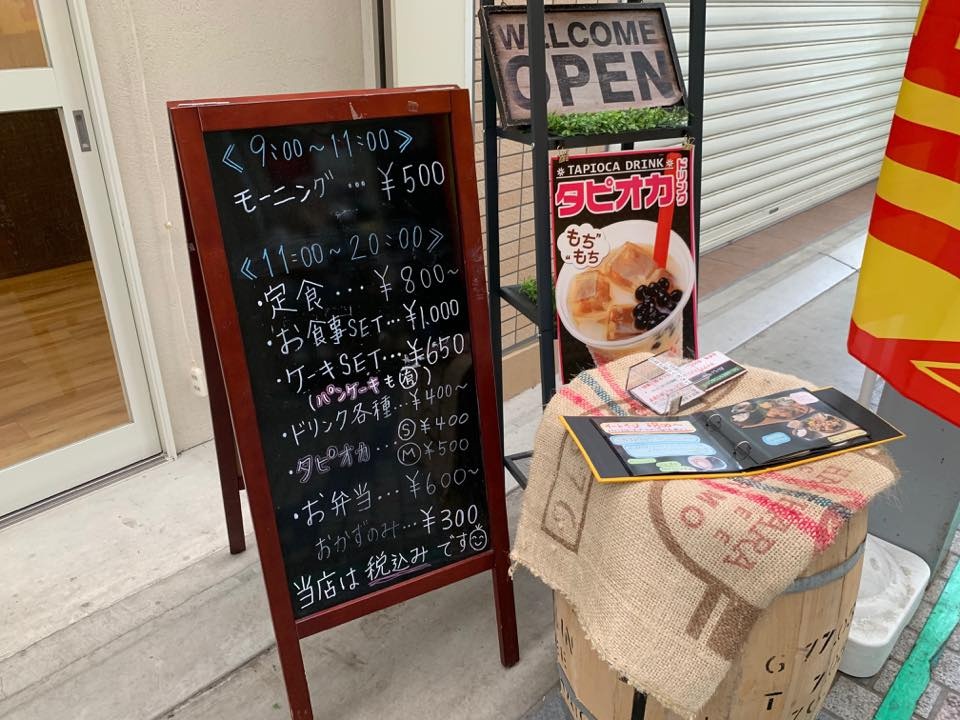 《9:00～11:00》
モーニング … ¥500
《11:00～20:00》
・定食 … ¥800～
・お食事SET … ¥1,000
・ケーキSET … ¥650
(パンケーキも有)
・ドリンク各種 … ¥400～
・タピオカ Ⓢ ¥400
Ⓜ ¥500
・お弁当 … ¥600～
おかずのみ … ¥300
当店は税込みです
WELCOME
OPEN
TAPIOCA DRINK
タピオカ
ドリンク
もちもち